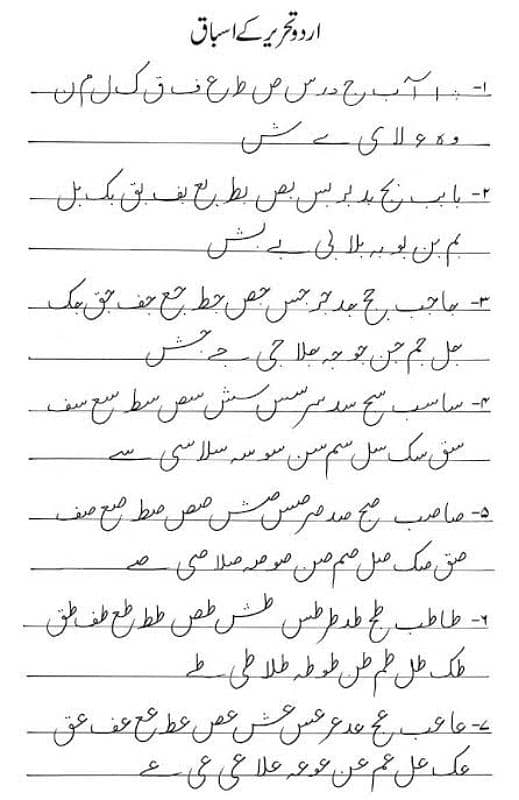 اردو تحریر کے اسباق
۱- ا آ ب ج د ر س ص ط ع ف ق ک ل م ن
و ہ ء لا ی ے ش
۲- با بب بج بد بر بس بص بط بع بف بق بک بل
بم بن بو بہ بلا بی بے بش
۳- حا حب حج حد حر حس حص حط حع حف حق حک
حل حم حن حو حہ حلا حی حے حش
۴- سا سب سج سد سر سس سش سص سط سع سف
سق سک سل سم سن سو سہ سلا سی سے
۵- صا صب صج صد صر صس صش صص صط صع صف
صق صک صل صم صن صو صہ صلا صی صے
۶- طا طب طج طد طر طس طش طص طط طع طف طق
طک طل طم طن طو طہ طلا طی طے
۷- عا عب عج عد عر عس عش عص عط عع عف عق
عک عل عم عن عو عہ علا عی عی عے